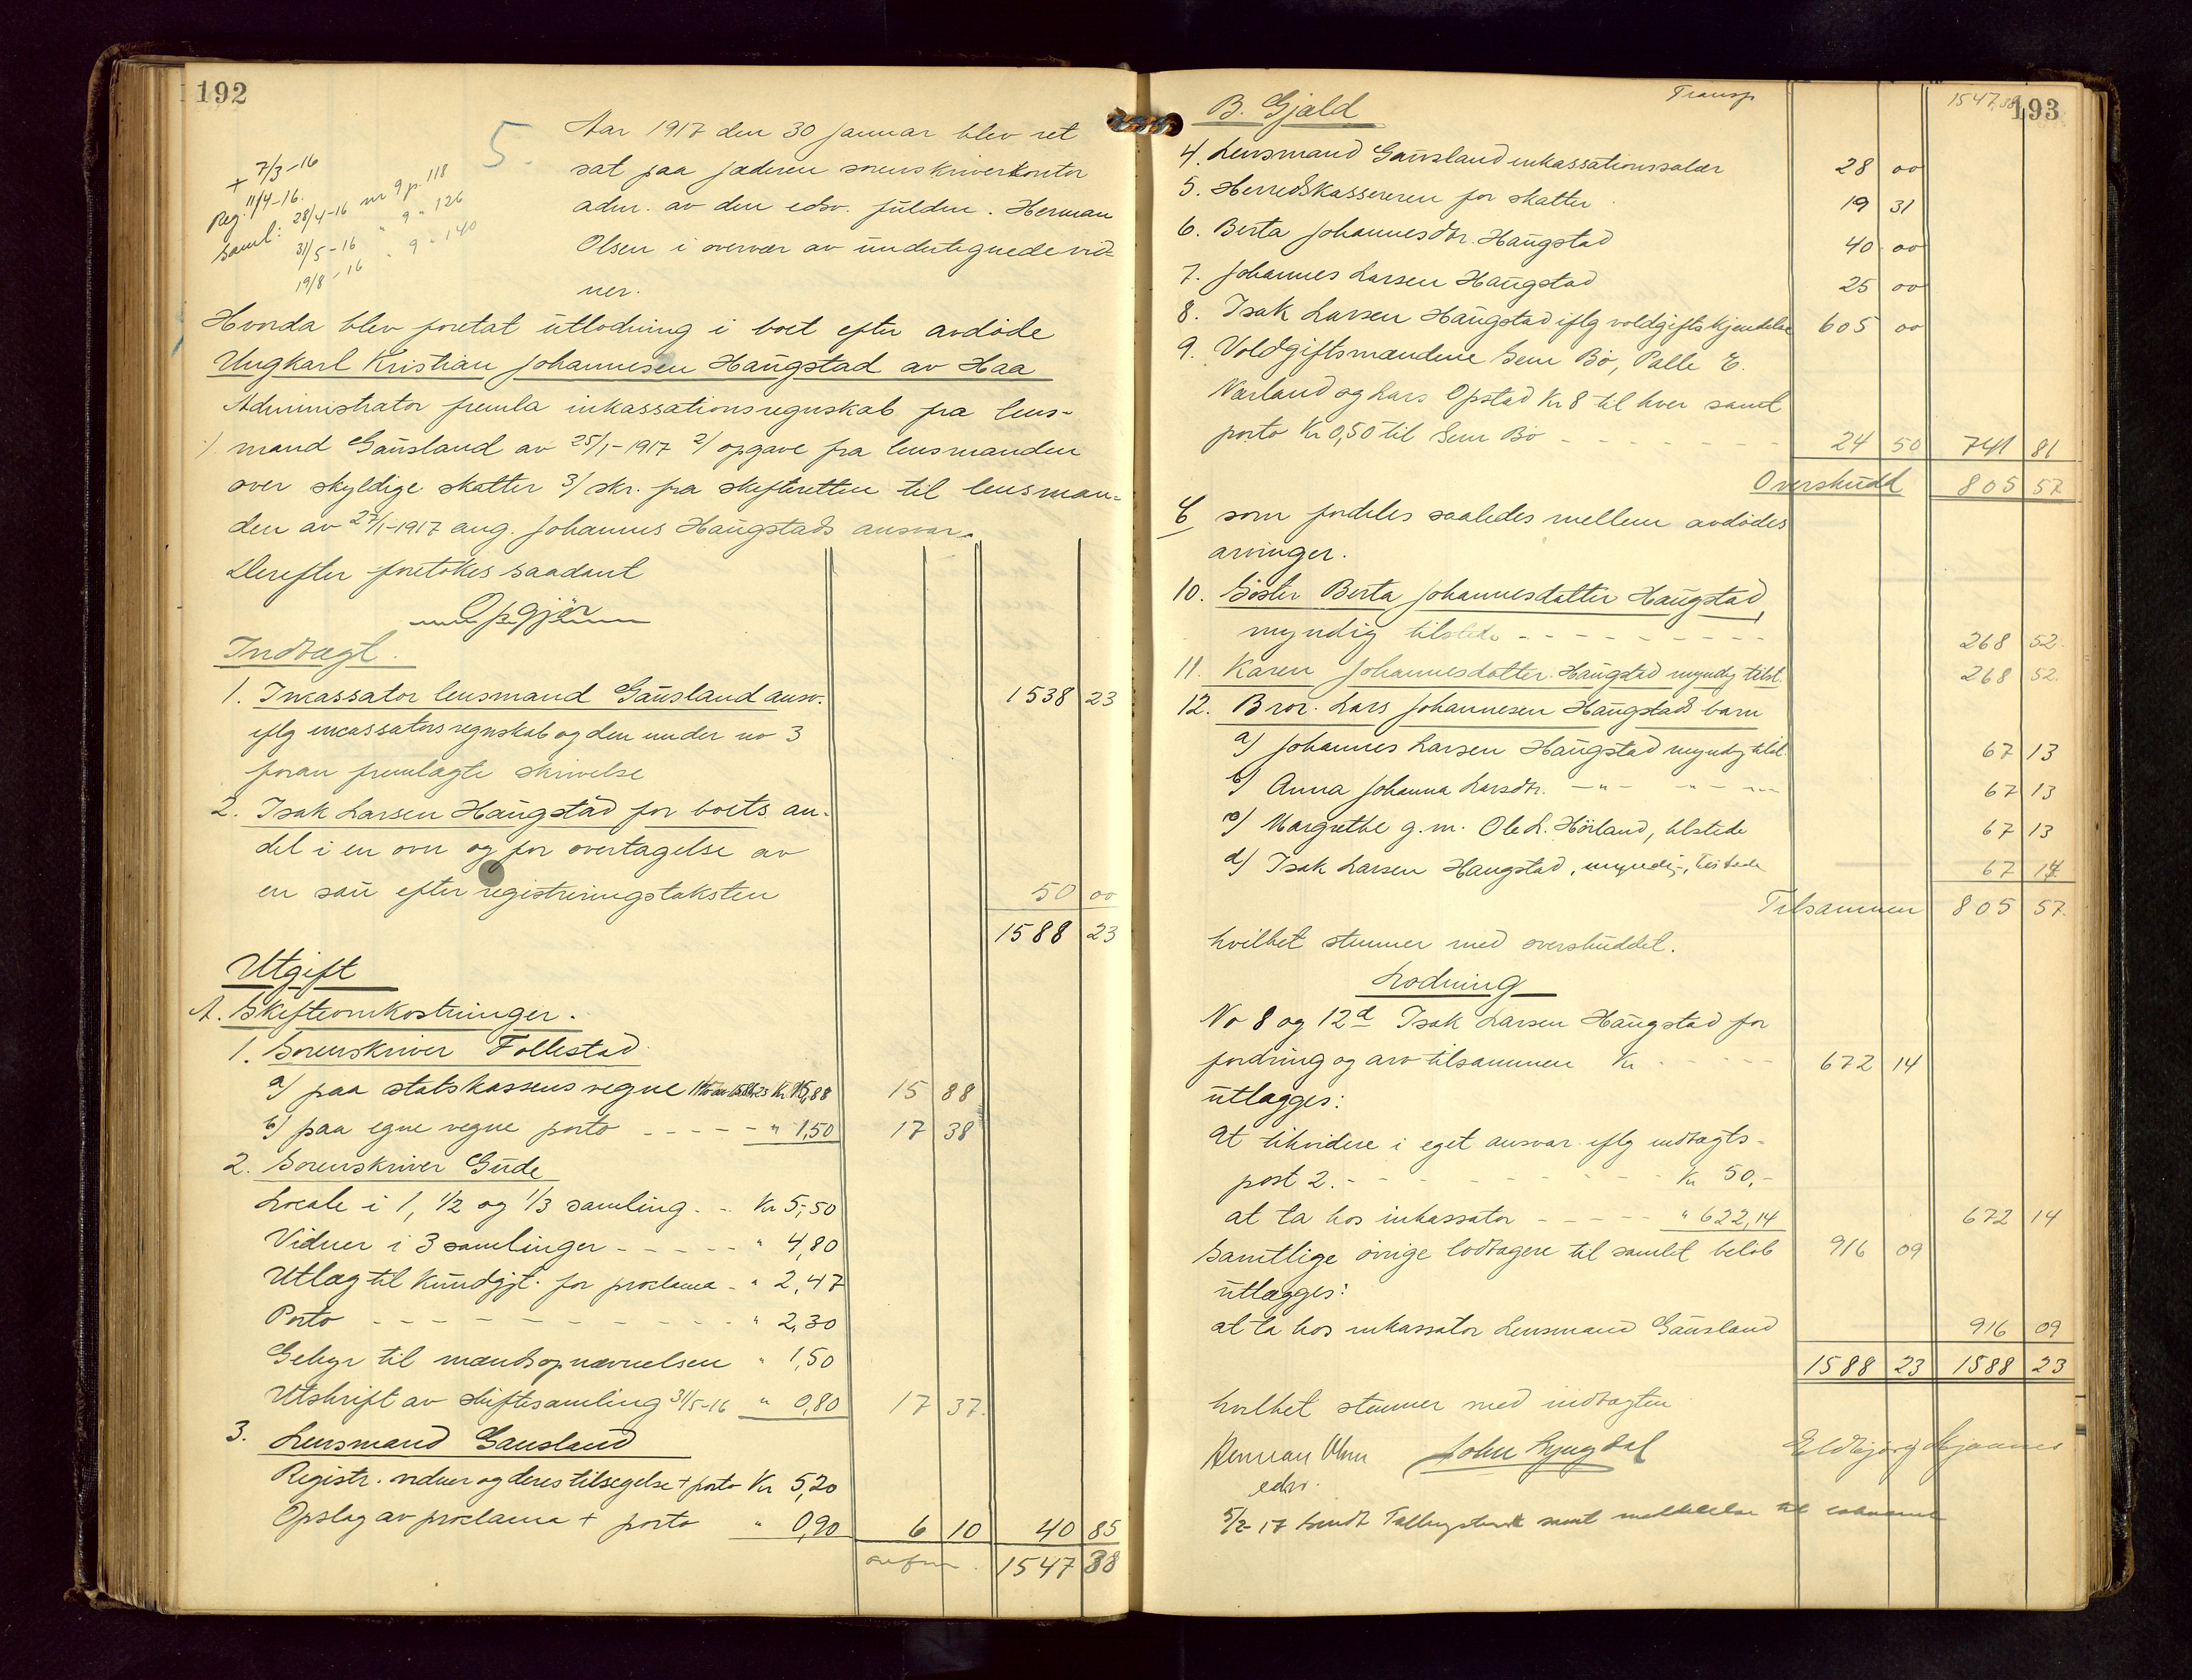 192
5.
+ 7/3-16
Reg. 11/4-16.
Saml: 28/4-16 nr 9 p. 118
31/5-16 " 9 " 126
19/8-16 " 9 " 140
Aar 1917 den 30 januar blev ret
sat paa jæderen sorenskriverkontor
adm. av den edsv. fuldm. Herman
Olsen i overvær av undertegnede vid-
ner.
Hvorda blev foretat utlodning i boet efter avdöde
Ungkarl Kristian Johannesen Haugstad av Haa
Administrator fremla inkassationsregnskab fra lens-
1/ mand Gausland av 25/1-1917 2/ opgave fra lensmanden
over skyldige skatter 3/ skr. fra skifteretten til lensman-
den av 27/1-1917 ang. Johannes Haugstads ansvar.
Derefter foretokes saadant
Opgjör
Indtægt.
1. Incassator lensmand Gausland ansv. 1538 23
iflg incassators regnskab og den under no 3
foran fremlagte skrivelse
2. Isak Larsen Haugstad for boets an-
del i en ovn og for overtagelse av
en sau efter registreringstaksten 50 00
1588 23
Utgift
A. Skifteomkostninger.
1. Sorenskriver Follestad
a) paa statskassens vegne 1% av 1588,23 Kr. 15,88 15 88
b) paa egne vegne porto - - - - - " 1,50 17 38
2. Sorenskriver Gude
Locale i 1, 1/2 og 1/3 samling - - Kr 5,50
Vidner i 3 samlinger - - - - - " 4,80
Utlæg til kundgjt. for proclama - " 2,47
Porto - - - - - - - - - - - " 2,30
Gebyr til mandsopnævnelsen " 1,50
Utskrift av skiftesamling 31/5-16 " 0,80 17 37.
3. Lensmand Gausland
Registr. vidner og deres tilsegelse + porto Kr 5,20
Opslag av proclama + porto " 0,90 6 10 40 85
1547 38
193
B. Gjæld Transp 1547,38
4. Lensmand Gausland inkassationssalær 28 00
5. Herredskassereren for skatter 19 31
6. Berta Johannesdtr. Haugstad 40 00
7. Johannes Larsen Haugstad 25 00
8. Isak Larsen Haugstad iflg voldgiftskjendelse 605 00
9. Voldgiftsmændene Sem Bö, Palle E.
Nærland og Lars Opstad Kr 8 til hver samt
porto Kr 0,50 til Sem Bö - - - - - - - 24 50 741 81
Overskudd 805 57
C som fordeles saaledes mellem avdödes
arvinger.
10. Söster Berta Johannesdatter Haugstad,
myndig tilstede - - - - - - - - - 268 52.
11. Karen Johannesdatter Haugstad myndig tilst. 268 52.
12. Bror. Lars Johannesen Haugstads barn
a) Johannes Larsen Haugstad myndig tilst 67 13
b) Anna Johanna Larsdtr. - " - - " - 67 13
c) Margrethe g.m. Ole L. Hörland, tilstede 67 13
d) Isak Larsen Haugstad, myndig, tilstede 67 14
Tilsammen 805 57.
hvilket stemmer med overskuddet.
Lodning
No 8 og 12d Isak Larsen Haugstad for
fordring og arv tilsammen Kr - - - - - 672 14
utlægges:
at likvidere i eget ansvar iflg indtægts-
post 2. - - - - - - - - - Kr 50,-
at ta hos inkassator - - - - - " 622,14 672 14
Samtlige övrige lodtagere til samlet belöb 916 09
utlægges:
at ta hos inkassator Lensmand Gausland 916 09
1588 23 1588 23
hvilket stemmer med indtægten
Herman Olsen John Lyngdal
edsv.
5/2-17 sendt samt meddelelse til